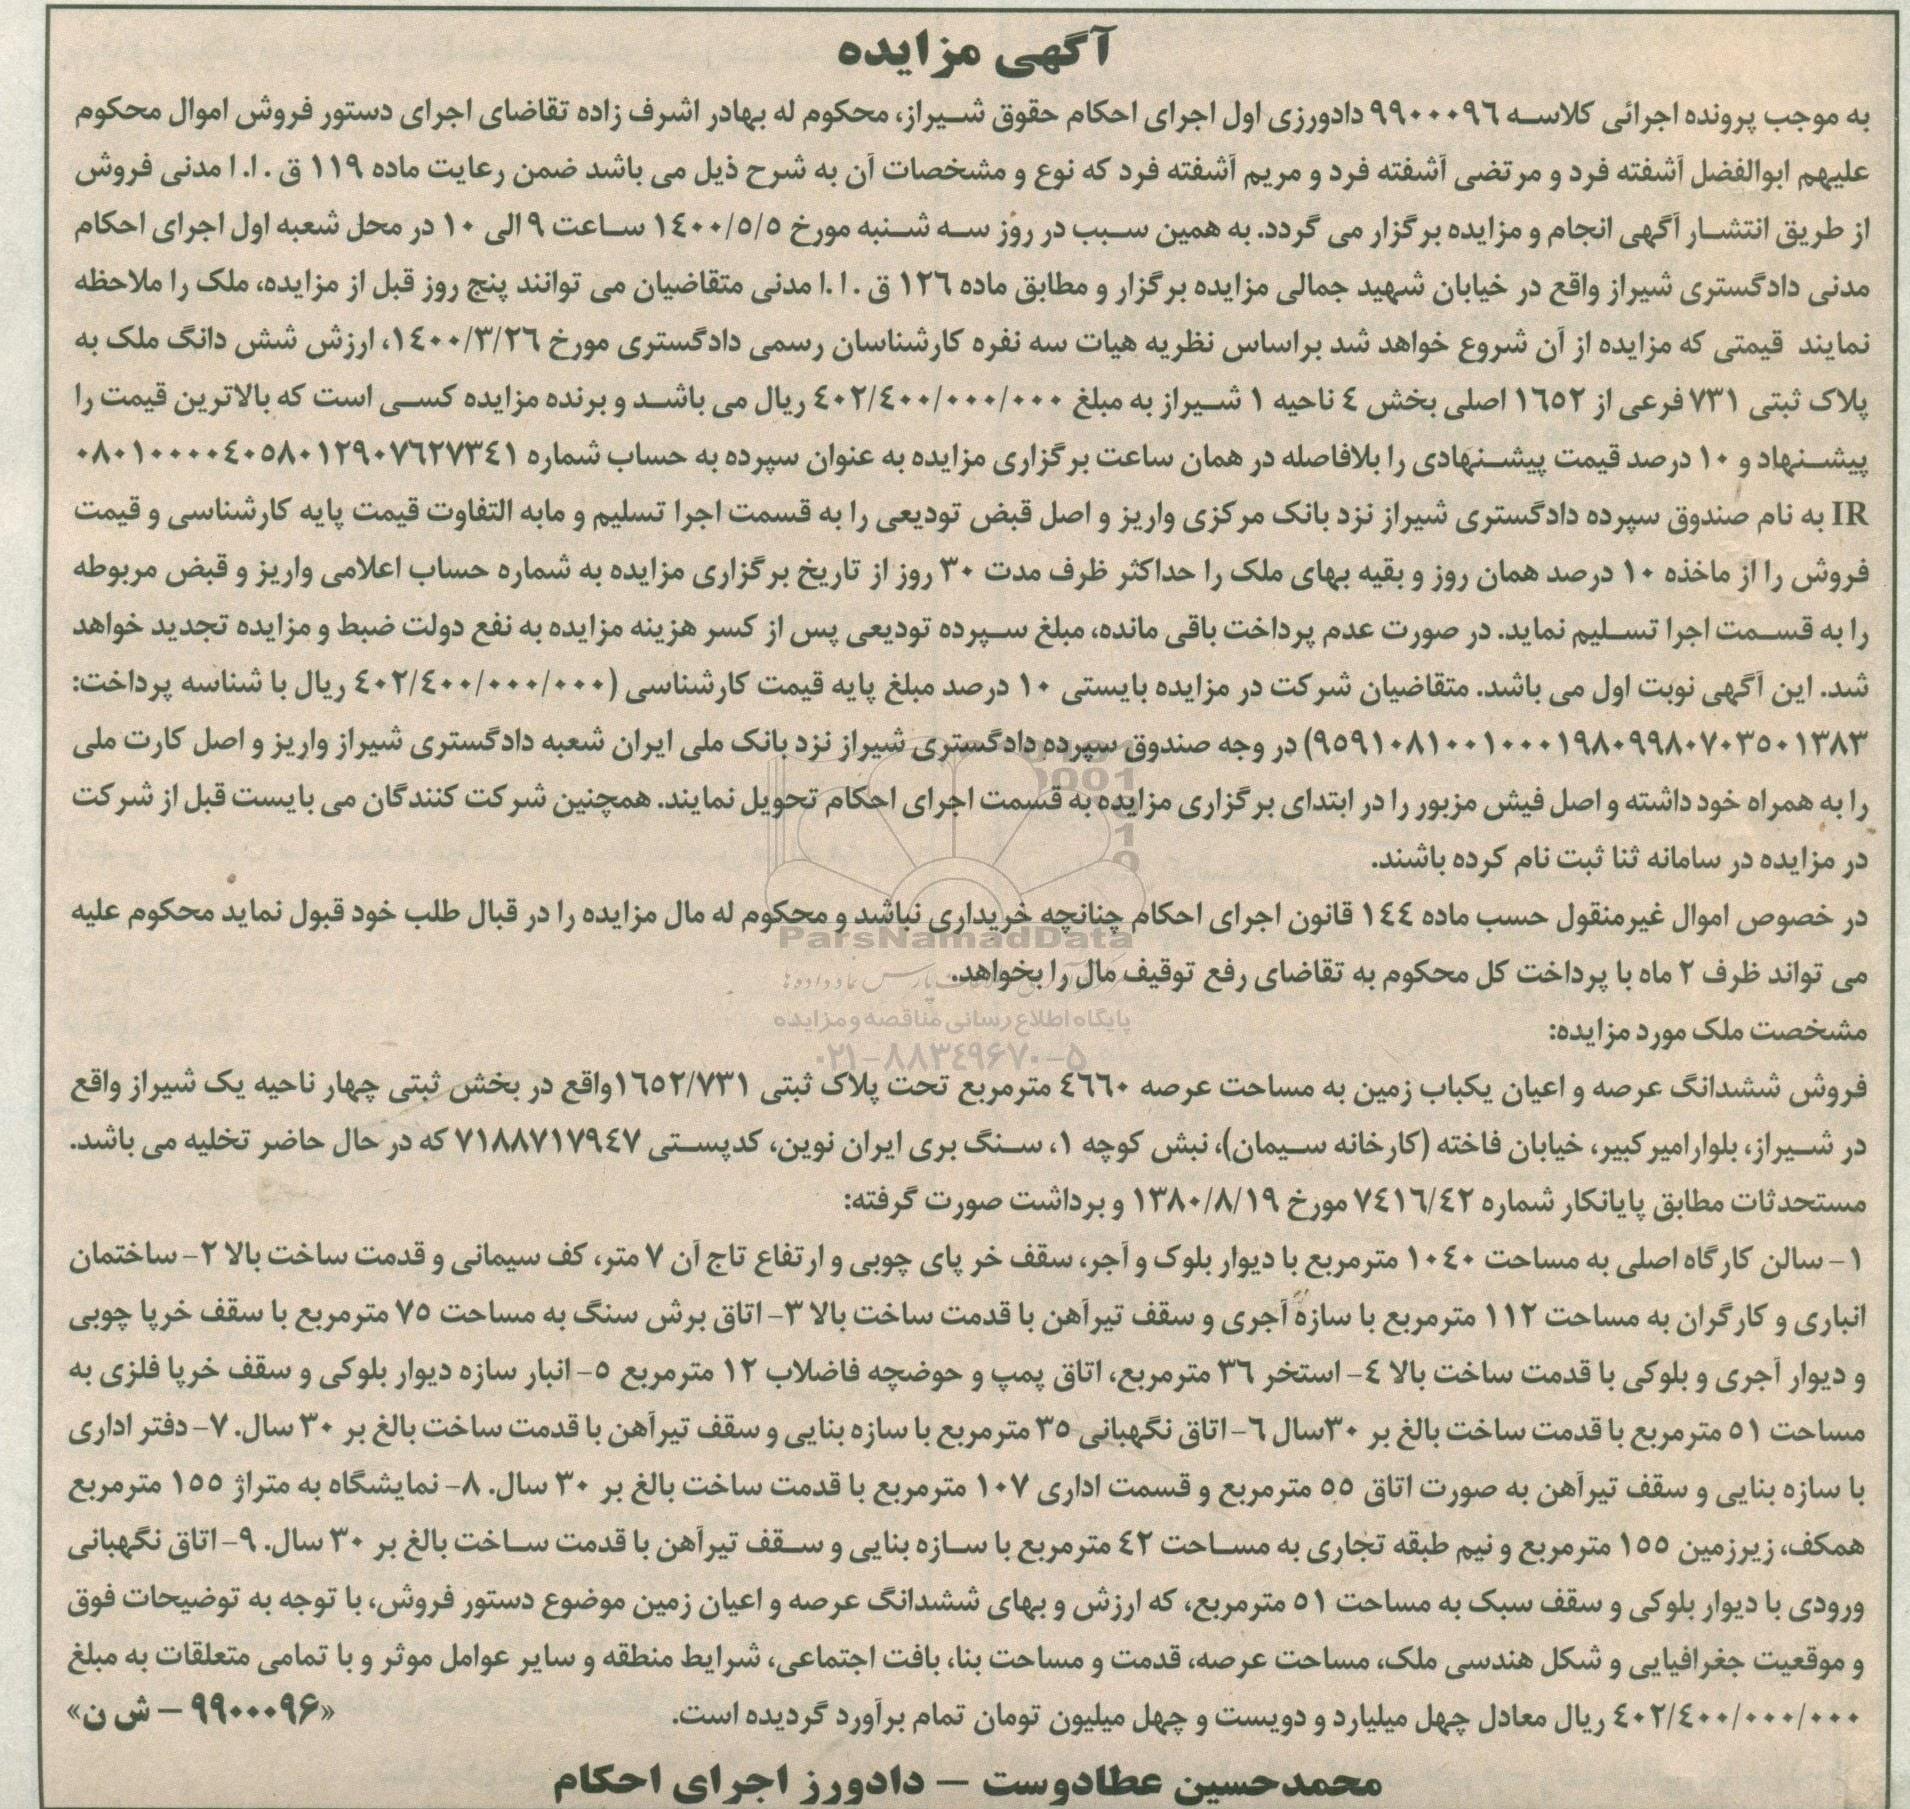 آگهی مزایده
به موجب پرونده اجرائی کلاسه ۹۹۰۰۰۹۶ دادورزی اول اجرای احکام حقوق شیراز، محکوم له بهادر اشرف زاده تقاضای اجرای دستور فروش اموال محکوم
علیهم ابوالفضل آشفته فرد و مرتضی آشفته فرد و مریم آشفته فرد که نوع و مشخصات آن به شرح ذیل می باشد ضمن رعایت ماده ۱۱۹ ق . ا. ا مدنی فروش
از طریق انتشار آگهی انجام و مزایده برگزار می گردد. به همین سبب در روز سه شنبه مورخ ۱۴۰۰/۵/۵ ساعت ۹ الی ۱۰ در محل شعبه اول اجرای احکام
مدنی دادگستری شیراز واقع در خیابان شهید جمالی مزایده برگزار و مطابق ماده ۱۲۶ ق . ا .ا مدنی متقاضیان می توانند پنج روز قبل از مزایده، ملک را ملاحظه
نمایند قیمتی که مزایده از آن شروع خواهد شد براساس نظریه هیات سه نفره کارشناسان رسمی دادگستری مورخ ۱۴۰۰/۳/۲۶، ارزش شش دانگ ملک به
پلاک ثبتی ۷۳۱ فرعی از ۱۶۵۲ اصلی بخش ۴ ناحیه ۱ شیراز به مبلغ ۴۰۲/۴۰۰/۰۰۰/۰۰۰ ریال می باشد و برنده مزایده کسی است که بالاترین قیمت را
پیشنهاد و ۱۰ درصد قیمت پیشنهادی را بلافاصله در همان ساعت برگزاری مزایده به عنوان سپرده به حساب شماره ۰۸۰۱۰۰۰۰۴۰۵۸۰۱۲۹۰۷۶۲۷۳۴۱
IR به نام صندوق سپرده دادگستری شیراز نزد بانک مرکزی واریز و اصل قبض تودیعی را به قسمت اجرا تسلیم و مابه التفاوت قیمت پایه کارشناسی و قیمت
فروش را از ماخذه ۱۰ درصد همان روز و بقیه بهای ملک را حداکثر ظرف مدت ۳۰ روز از تاریخ برگزاری مزایده به شماره حساب اعلامی واریز و قبض مربوطه
را به قسمت اجرا تسلیم نماید. در صورت عدم پرداخت باقی مانده، مبلغ سپرده تودیعی پس از کسر هزینه مزایده به نفع دولت ضبط و مزایده تجدید خواهد
شد. این آگهی نوبت اول می باشد. متقاضیان شرکت در مزایده بایستی ۱۰ درصد مبلغ پایه قیمت کارشناسی (۴۰۲/۴۰۰/۰۰۰/۰۰۰ ریال با شناسه پرداخت:
۹۵۹۱۰۸۱۰۰۱۰۰۰۱۹۸۰۹۹۸۰۷۰۳۵۰۱۳۸۳) در وجه صندوق سپرده دادگستری شیراز نزد بانک ملی ایران شعبه دادگستری شیراز واریز و اصل کارت ملی
را به همراه خود داشته و اصل فیش مزبور را در ابتدای برگزاری مزایده به قسمت اجرای احکام تحویل نمایند. همچنین شرکت کنندگان می بایست قبل از شرکت
در مزایده در سامانه ثنا ثبت نام کرده باشند.
در خصوص اموال غیرمنقول حسب ماده ۱۴۴ قانون اجرای احکام چنانچه خریداری نباشد و محکوم له مال مزایده را در قبال طلب خود قبول نماید محکوم علیه
ParsNamadData
می تواند ظرف ۲ ماه با پرداخت کل محکوم به تقاضای رفع توقیف مال را بخواهد.
پایگاه اطلاع رسانی مناقصه و مزایده
مشخصت ملک مورد مزایده:
۰۲۱-۸۸۳۴۹۶۷۰-۵
فروش ششدانگ عرصه و اعیان یکباب زمین به مساحت عرصه ۴۶۶۰ مترمربع تحت پلاک ثبتی ۱۶۵۲/۷۳۱واقع در بخش ثبتی چهار ناحیه یک شیراز واقع
در شیراز، بلوارامیرکبیر، خیابان فاخته (کارخانه سیمان)، نبش کوچه ۱، سنگ بری ایران نوین، کدپستی ۷۱۸۸۷۱۷۹۴۷ که در حال حاضر تخلیه می باشد.
مستحدثات مطابق پایانکار شماره ۷۴۱۶/۴۲ مورخ ۱۳۸۰/۸/۱۹ و برداشت صورت گرفته:
۱- سالن کارگاه اصلی به مساحت ۱۰۴۰ مترمربع با دیوار بلوک و آجر، سقف خر پای چوبی و ارتفاع تاج آن ۷ متر، کف سیمانی و قدمت ساخت بالا ۲- ساختمان
انباری و کارگران به مساحت ۱۱۲ مترمربع با سازه آجری و سقف تیرآهن با قدمت ساخت بالا ۳- اتاق برش سنگ به مساحت ۷۵ مترمربع با سقف خرپا چوبی
و دیوار آجری و بلوکی با قدمت ساخت بالا ۴- استخر ۳۶ مترمربع، اتاق پمپ و حوضچه فاضلاب ۱۲ مترمربع ۵- انبار سازه دیوار بلوکی و سقف خرپا فلزی به
مساحت ۵۱ مترمربع با قدمت ساخت بالغ بر ۳۰سال ۶- اتاق نگهبانی ۳۵ مترمربع با سازه بنایی و سقف تیرآهن با قدمت ساخت بالغ بر ۳۰ سال. ۷- دفتر اداری
با سازه بنایی و سقف تیرآهن به صورت اتاق ۵۵ مترمربع و قسمت اداری ۱۰۷ مترمربع با قدمت ساخت بالغ بر ۳۰ سال. ۸- نمایشگاه به متراژ ۱۵۵ مترمربع
همکف، زیرزمین ۱۵۵ مترمربع و نیم طبقه تجاری به مساحت ۴۲ مترمربع با سازه بنایی و سقف تیرآهن با قدمت ساخت بالغ بر ۳۰ سال. ۹- اتاق نگهبانی
ورودی با دیوار بلوکی و سقف سبک به مساحت ۵۱ مترمربع، که ارزش و بهای ششدانگ عرصه و اعیان زمین موضوع دستور فروش، با توجه به توضیحات فوق
و موقعیت جغرافیایی و شکل هندسی ملک، مساحت عرصه، قدمت و مساحت بنا، بافت اجتماعی، شرایط منطقه و سایر عوامل موثر و با تمامی متعلقات به مبلغ
۴۰۲/۴۰۰/۰۰۰/۰۰۰ ریال معادل چهل میلیارد و دویست و چهل میلیون تومان تمام برآورد گردیده است. «۹۹۰۰۰۹۶ – ش ن»
محمدحسین عطادوست – دادورز اجرای احکام